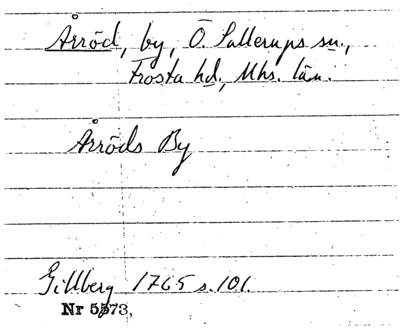 Årröd, by, Ö. Sallerups sn.,
Frosta hd., Mhs. län.
Årröds By
Gillberg 1765 s. 101.
Nr 5573,